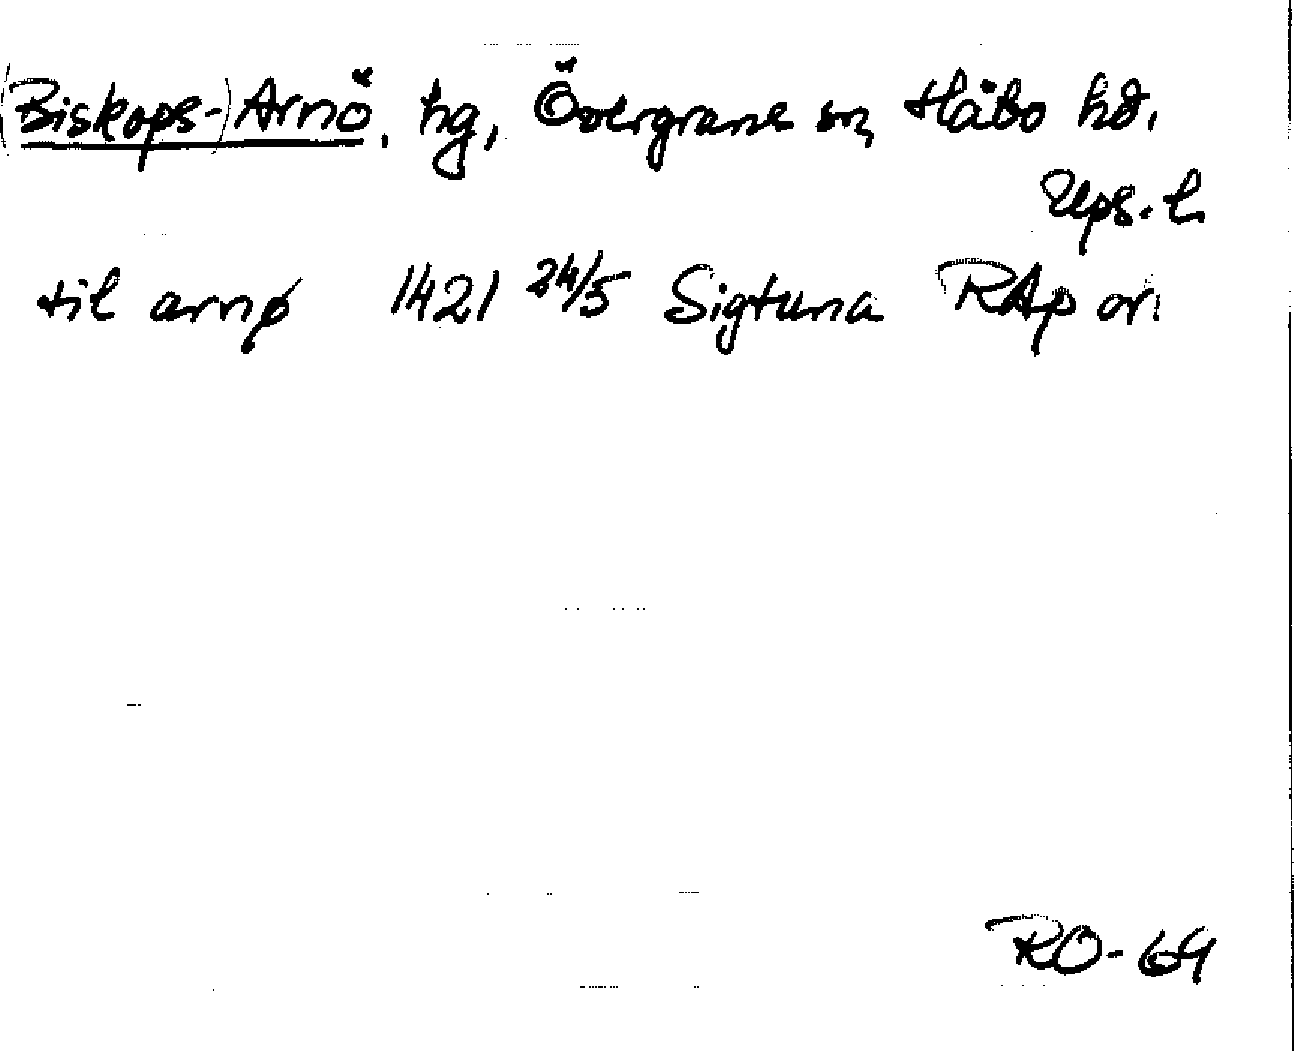 (Biskops-)Arnö, hg, Övergrans sn, Håbo hd,
Ups. l.
til arnø 1421 24/5 Sigtuna RAp or.
RO-69